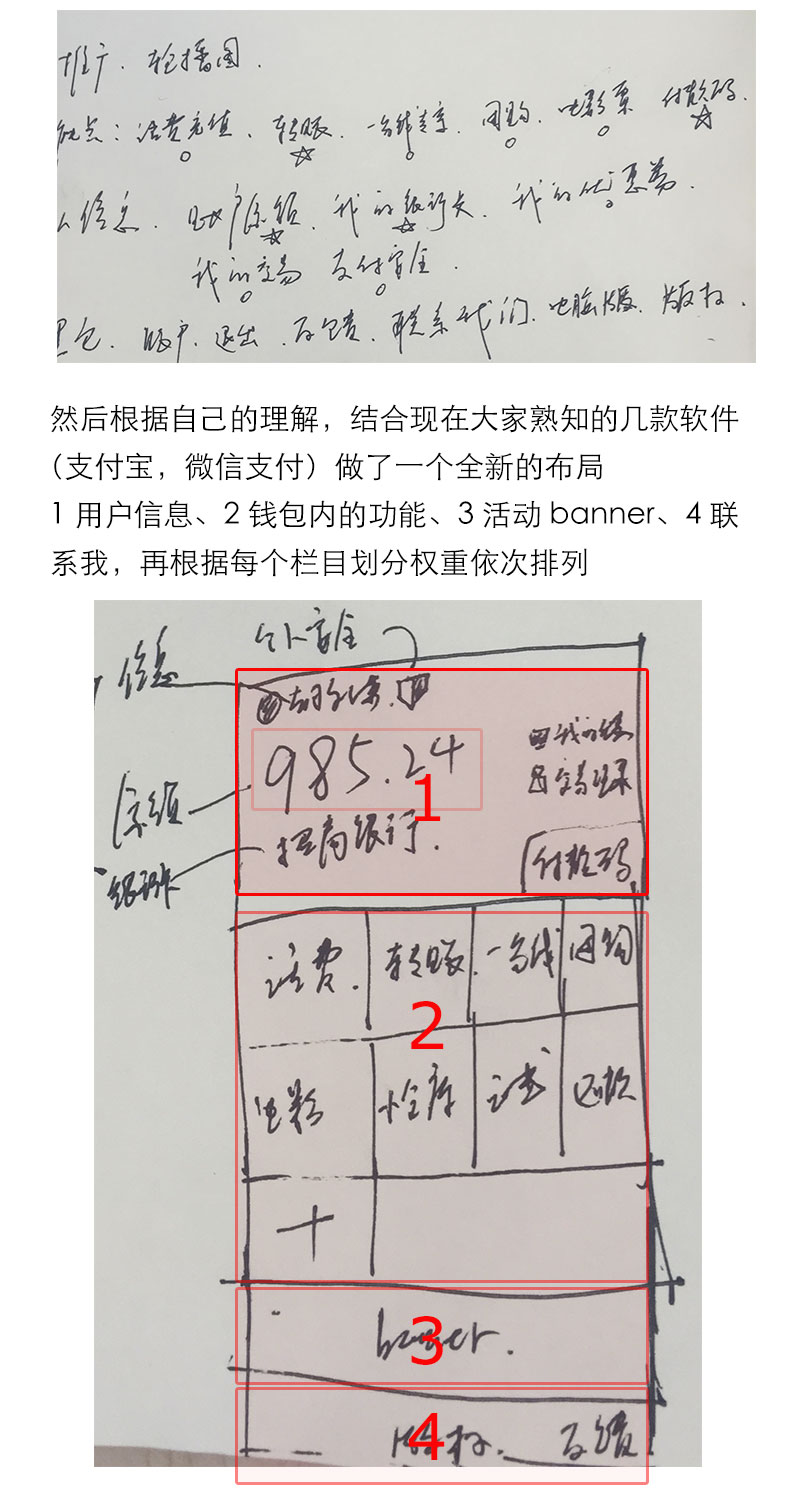 推广. 轮播图.
点: 话费充值. 转账. 一分钱夺宝. 团购. 电影票 付款码.
人信息. 账户余额. 我的银行卡. 我的优惠券.
我的交易 支付安全.
钱包. 账户. 退出. 反馈. 联系我们. 电脑版. 版权.
然后根据自己的理解，结合现在大家熟知的几款软件
（支付宝，微信支付）做了一个全新的布局
1 用户信息、2 钱包内的功能、3 活动 banner、4 联
系我，再根据每个栏目划分权重依次排列
信息 安全
余额 985.24 1
交易记录
银行卡 招商银行. 付款码
话费. 转账. 一分钱 团购
2
电影 还款
十
banner. 3
版权. 反馈 4